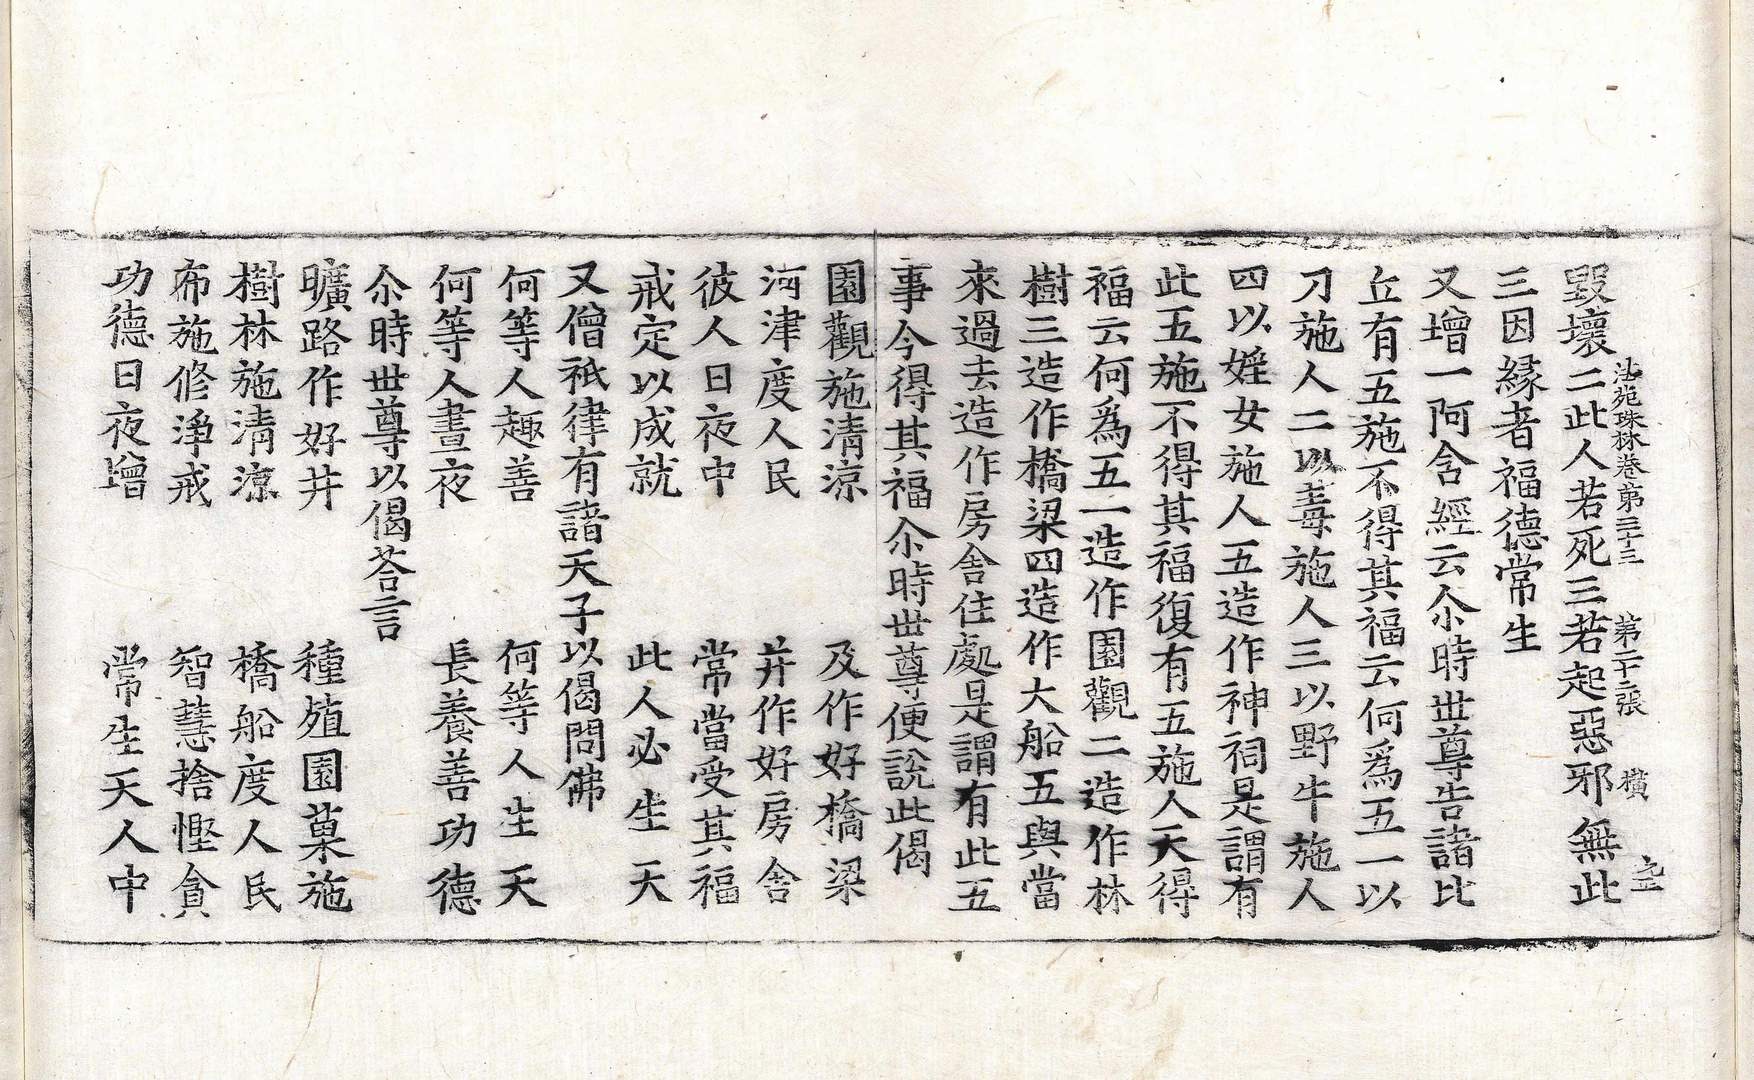 法苑珠林卷第三十三　第二十二張　橫
毀壞二此人若死三若起惡邪無此
三因緣者福德常生
又增一阿含經云尒時世尊告諸比
丘有五施不得其福云何爲五一以
刀施人二以毒施人三以野牛施人
四以婬女施人五造作神祠是謂有
此五施不得其福復有五施人天得
福云何爲五一造作園觀二造作林
樹三造作橋梁四造作大船五與當
來過去造作房舍住處是謂有此五
事今得其福尒時世尊便說此偈
園觀施清涼　及作好橋梁
河津度人民　幷作好房舍
彼人日夜中　常當受其福
戒定以成就　此人必生天
又僧祇律有諸天子以偈問佛
何等人趣善　何等人生天
何等人晝夜　長養善功德
尒時世尊以偈荅言
曠路作好井　種殖園菓施
樹林施清涼　橋船度人民
布施修淨戒　智慧捨慳貪
功德日夜增　常生天人中